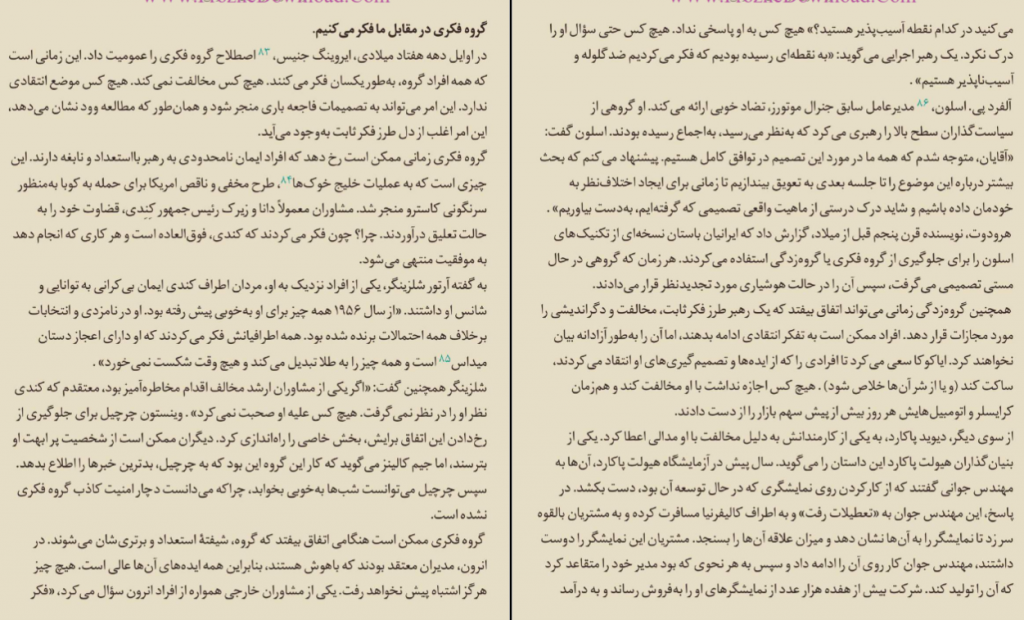 گروه فکری در مقابل ما فکر می‌کنیم.
در اوایل دهه هفتاد میلادی، ایروینگ جنیس، ۸۳ اصطلاح گروه فکری را عمومیت داد. این زمانی است
که همه افراد گروه، به‌طور یکسان فکر می‌کنند. هیچ کس مخالفت نمی‌کند. هیچ کس موضع انتقادی
ندارد. این امر می‌تواند به تصمیمات فاجعه باری منجر شود و همان‌طور که مطالعه وود نشان می‌دهد،
این امر اغلب از دل طرز فکر ثابت به‌وجود می‌آید.
گروه فکری زمانی ممکن است رخ دهد که افراد ایمان نامحدودی به رهبر بااستعداد و نابغه دارند. این
چیزی است که به عملیات خلیج خوک‌ها۸۴، طرح مخفی و ناقص امریکا برای حمله به کوبا به‌منظور
سرنگونی کاسترو منجر شد. مشاوران معمولاً دانا و زیرک رئیس جمهور کِنِدی، قضاوت خود را به
حالت تعلیق درآوردند. چرا؟ چون فکر می‌کردند که کندی، فوق‌العاده است و هر کاری که انجام دهد
به موفقیت منتهی می‌شود.
به گفته آرتور شلزینگر، یکی از افراد نزدیک به او، مردان اطراف کندی ایمان بی‌کرانی به توانایی و
شانس او داشتند. «از سال ۱۹۵۶ همه چیز برای او به‌خوبی پیش رفته بود. او در نامزدی و انتخابات
برخلاف همه احتمالات برنده شده بود. همه اطرافیانش فکر می‌کردند که او دارای اعجاز دستان
میداس۸۵ است و همه چیز را به طلا تبدیل می‌کند و هیچ وقت شکست نمی‌خورد» .
شلزینگر همچنین گفت: «اگر یکی از مشاوران ارشد مخالف اقدام مخاطره‌آمیز بود، معتقدم که کندی
نظر او را در نظر نمی‌گرفت. هیچ کس علیه او صحبت نمی‌کرد» . وینستون چرچیل برای جلوگیری از
رخ‌دادن این اتفاق برایش، بخش خاصی را راه‌اندازی کرد. دیگران ممکن است از شخصیت پر ابهت او
بترسند، اما جیم کالینز می‌گوید که کار این گروه این بود که به چرچیل، بدترین خبرها را اطلاع بدهد.
سپس چرچیل می‌توانست شب‌ها به‌خوبی بخوابد، چراکه می‌دانست دچار امنیت کاذب گروه فکری
نشده است.
گروه فکری ممکن است هنگامی اتفاق بیفتد که گروه، شیفتهٔ استعداد و برتری‌شان می‌شوند. در
انرون، مدیران معتقد بودند که باهوش هستند، بنابراین همه ایده‌های آن‌ها عالی است. هیچ چیز
هرگز اشتباه پیش نخواهد رفت. یکی از مشاوران خارجی همواره از افراد انرون سؤال می‌کرد، «فکر
می‌کنید در کدام نقطه آسیب‌پذیر هستید؟» هیچ کس به او پاسخی نداد. هیچ کس حتی سؤال او را
درک نکرد. یک رهبر اجرایی می‌گوید: «به نقطه‌ای رسیده بودیم که فکر می‌کردیم ضدگلوله و
آسیب‌ناپذیر هستیم» .
آلفرد پی. اسلون، ۸۶ مدیرعامل سابق جنرال موتورز، تضاد خوبی ارائه می‌کند. او گروهی از
سیاست‌گذاران سطح بالا را رهبری می‌کرد که به‌نظر می‌رسید، به‌اجماع رسیده بودند. اسلون گفت:
«آقایان، متوجه شدم که همه ما در مورد این تصمیم در توافق کامل هستیم. پیشنهاد می‌کنم که بحث
بیشتر درباره این موضوع را تا جلسه بعدی به تعویق بیندازیم تا زمانی برای ایجاد اختلاف‌نظر به
خودمان داده باشیم و شاید درک درستی از ماهیت واقعی تصمیمی که گرفته‌ایم، به‌دست بیاوریم» .
هرودوت، نویسنده قرن پنجم قبل از میلاد، گزارش داد که ایرانیان باستان نسخه‌ای از تکنیک‌های
اسلون را برای جلوگیری از گروه فکری یا گروه‌زدگی استفاده می‌کردند. هر زمان که گروهی در حال
مستی تصمیمی می‌گرفت، سپس آن را در حالت هوشیاری مورد تجدیدنظر قرار می‌دادند.
همچنین گروه‌زدگی زمانی می‌تواند اتفاق بیفتد که یک رهبر طرز فکر ثابت، مخالفت و دگراندیشی را
مورد مجازات قرار دهد. افراد ممکن است به تفکر انتقادی ادامه بدهند، اما آن را به‌طور آزادانه بیان
نخواهند کرد. ایاکوکا سعی می‌کرد تا افرادی را که از ایده‌ها و تصمیم‌گیری‌های او انتقاد می‌کردند،
ساکت کند (و یا از شر آن‌ها خلاص شود) . هیچ کس اجازه نداشت با او مخالفت کند و هم‌زمان
کرایسلر و اتومبیل‌هایش هر روز بیش از پیش سهم بازار را از دست دادند.
از سوی دیگر، دیوید پاکارد، به یکی از کارمندانش به دلیل مخالفت با او مدالی اعطا کرد. یکی از
بنیان‌گذاران هیولت پاکارد این داستان را می‌گوید. سال پیش در آزمایشگاه هیولت پاکارد، آن‌ها به
مهندس جوانی گفتند که از کارکردن روی نمایشگری که در حال توسعه آن بود، دست بکشد. در
پاسخ، این مهندس جوان به «تعطیلات رفت» و به اطراف کالیفرنیا مسافرت کرده و به مشتریان بالقوه
سر زد تا نمایشگر را به آن‌ها نشان دهد و میزان علاقه آن‌ها را بسنجد. مشتریان این نمایشگر را دوست
داشتند، مهندس جوان کار روی آن را ادامه داد و سپس به هر نحوی که بود مدیر خود را متقاعد کرد
که آن را تولید کند. شرکت بیش از هفده هزار عدد از نمایشگرهای او را به‌فروش رساند و به درآمد